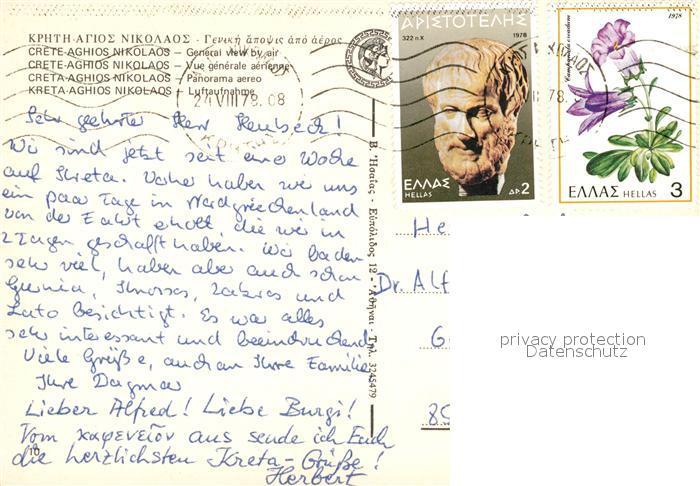 ΚΡΗΤΗ-ΑΓΙΟΣ ΝΙΚΟΛΑΟΣ - Γενική ἄποψις ἀπό ἀέρος
CRETE-AGHIOS NIKOLAOS – General view by air
CRETE-AGHIOS NIKOLAOS – Vue générale aérienne
CRETA-AGHIOS NIKOLAOS – Panorama aereo
KRETA-AGHIOS NIKOLAOS – Luftaufnahme
24 VIII 78. 08
Sehr geehrter Herr Heubeck!
Wir sind jetzt seit einer Woche
auf Kreta. Vorher haben wir uns
ein paar Tage in Nordgriechenland
von der Fahrt erholt, die wir in
2 Tagen geschafft haben. Wir baden
sehr viel, haben aber auch schon
Gurnia, Knossos, Zakros und
Lato besichtigt. Es war alles
sehr interessant und beeindruckend
Viele Grüße, auch an Ihre Familie
Ihre Dagmar
Lieber Alfred! Liebe Burgi!
Vom καφενεῖον aus sende ich Euch
die herzlichsten Kreta-Grüße!
Herbert
10
Β. Ἡσαΐας - Εὐπόλιδος 12 - Ἀθῆναι - Τηλ. 3245479
ΑΡΙΣΤΟΤΕΛΗΣ
322 π.Χ 1978
ΕΛΛΑΣ
HELLAS
ΔΡ 2
1978
78.
ΕΛΛΑΣ HELLAS 3
He
Dr. Alf
G
85
privacy protection
Datenschutz